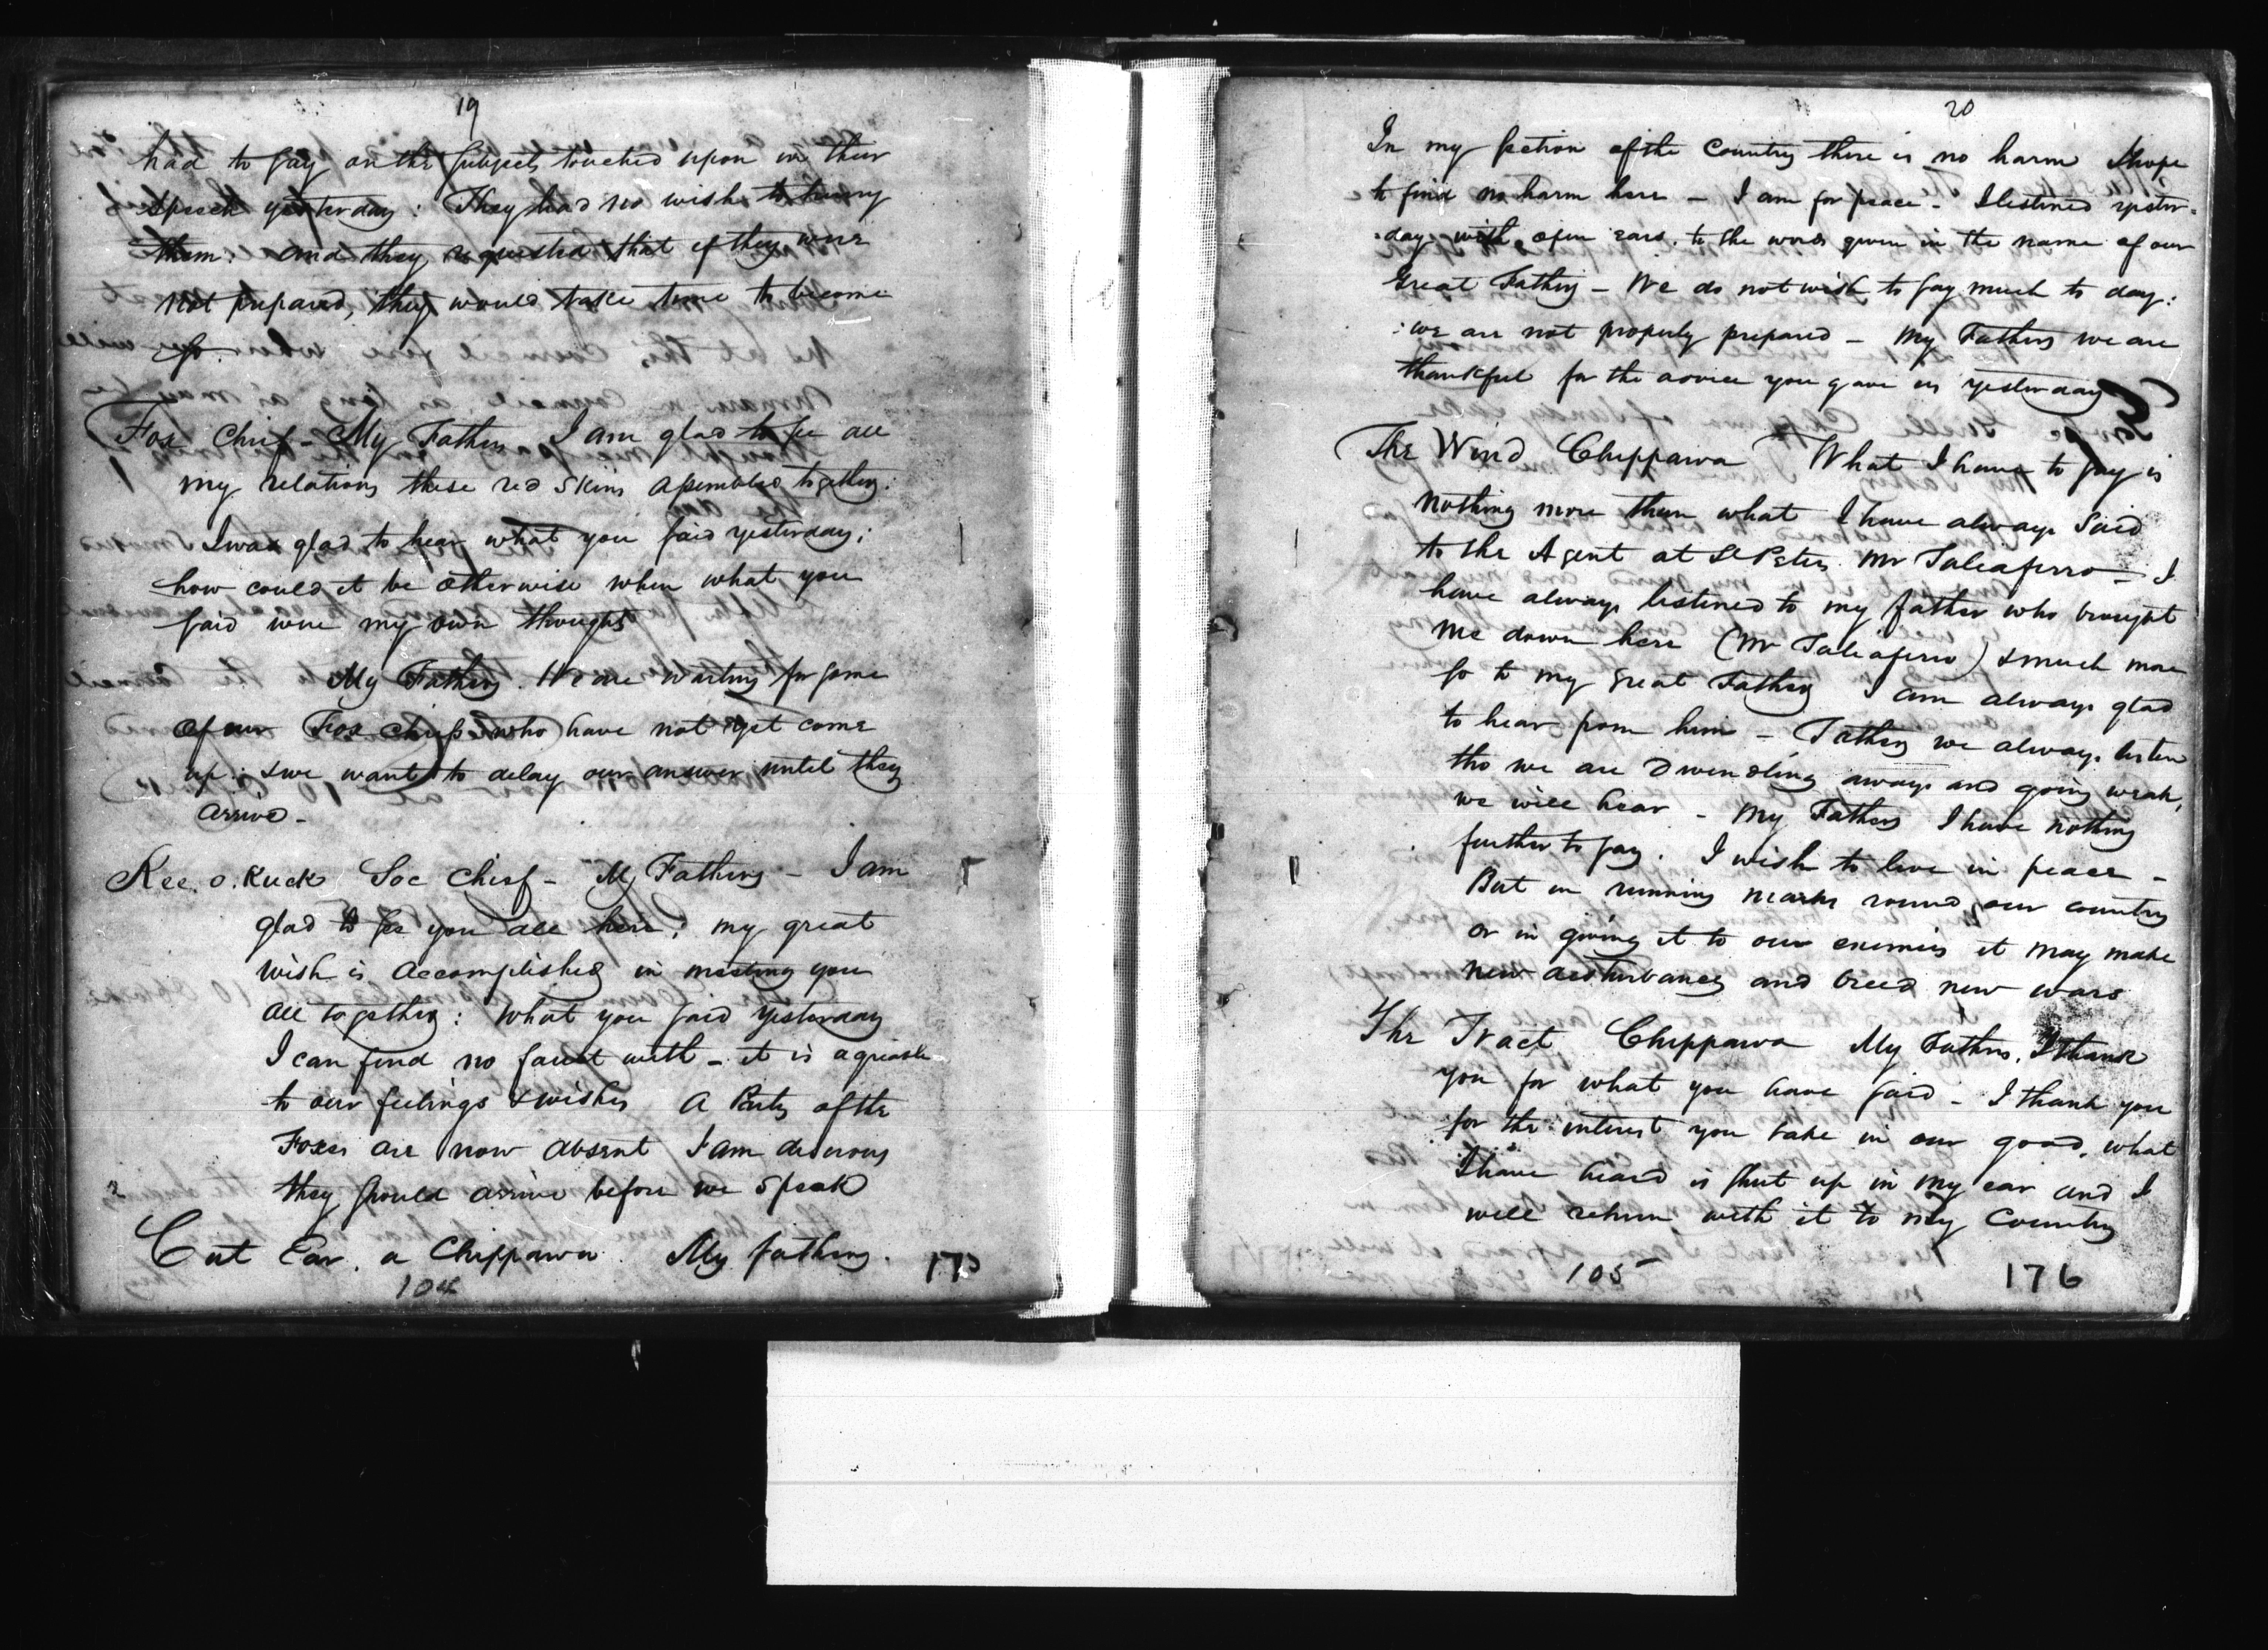 19
had to say on the subjects touched upon in their
speech yesterday: They had no wish to hurry
them: and they requested that if they were
not prepared, they would take time to become
so.
Fox Chief - My Fathers I am glad to see all
my relations these red skins assembled together.
I was glad to hear what you said yesterday;
how could it be otherwise when what you
said were my own thoughts
My Fathers. We are waiting for some
of our Fox chiefs who have not yet come
up: & we want to delay our answer until they
arrive -
Kee. o. Kuck Soc Chief - My Fathers - I am
glad to see you all here; my great
wish is accomplished in meeting you
all together: what you said yesterday
I can find no fault with - it is agreeable
to our feelings & wishes A Party of the
Foxes are now absent I am desirous
they should arrive before we speak
Cut Ear. a Chippawa. My fathers.
104
175
20
In my section of the Country there is no harm I hope
to find no harm here - I am for peace - I listened yester-
day with open ears. to the words given in the name of our
Great Father - We do not wish to say much to day:
we are not properly prepared - My Fathers we are
thankful for the advice you gave us yesterday
The Wind Chippawa What I have to say is
nothing more than what I have always said
to the Agent at St Peters. Mr Taliaferro - I
have always listened to my father who brought
me down here (Mr Taliaferro) & much more
so to my Great Father I am always glad
to hear from him - Fathers we always listen
tho we are dwindling away and going weak,
we will hear - My Fathers I have nothing
further to say. I wish to live in peace -
But in running marks round our country
or in giving it to our enemies it may make
new disturbances and breed new wars
The Chippawa My Fathers. I thank
you for what you have said - I thank you
for the interest you take in our good. what
I have heard is shut up in my ear and I
will return with it to my Country
105
176